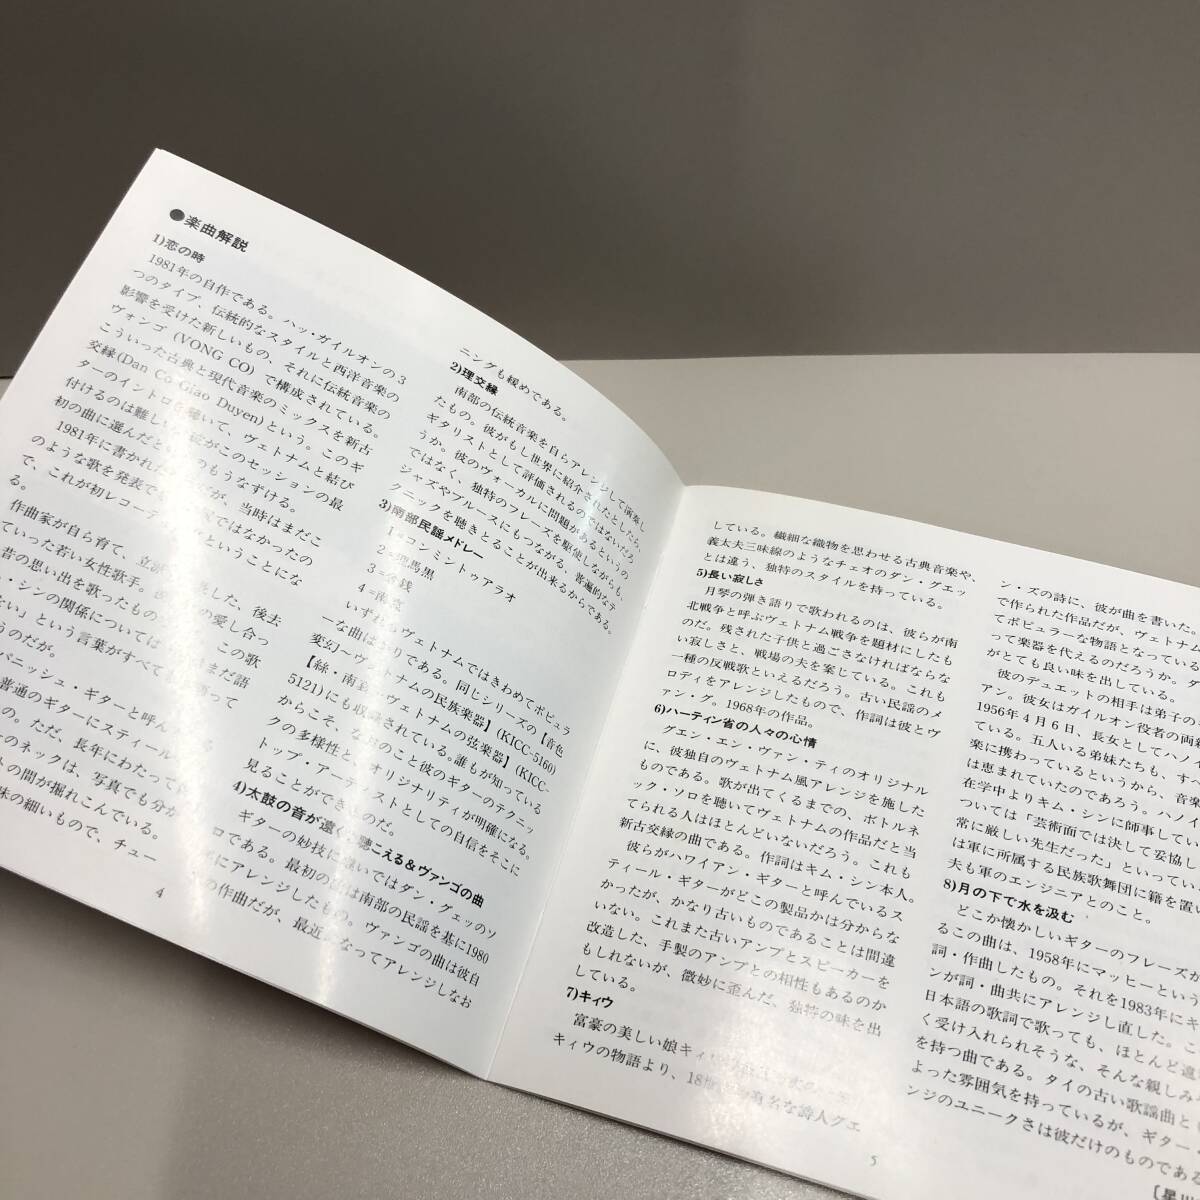 ●楽曲解説
1)恋の時
1981年の自作である。ハッ・ガイルオンの3
つのタイプ、伝統的なスタイルと西洋音楽の
影響を受けた新しいもの、それに伝統音楽の
ヴォンゴ (VONG CO) で構成されている。
こういった古典と現代音楽のミックスを新古
交縁(Dan Co Giao Duyen)という。このギ
ターのイントロを聴いて、ヴェトナムと結び
付けるのは難しい。彼がこのセッションの最
初の曲に選んだというのもうなずける。
1981年に書かれた
のような歌を発表で が、当時はまだこ
で、これが初レコーデ ではなかったの
る。 ということにな
作曲家が自ら育て、立派
ていった若い女性歌手。 した、後去
昔の思い出を歌ったもの の愛し合っ
・シンの関係については 、この歌
ない」という言葉がすべて まだ語
うのだが。 って
パニッシュ・ギターと呼ん
普通のギターにスティール
の。ただ、長年にわたって
ーのネックは、写真でも分か
トの間が掘れこんでいる。
味の細いもので、チュー
4
ニングも緩めである。
2)理交縁
南部の伝統音楽を自らアレンジして演奏し
たもの。彼がもし世界に紹介されたとしたら、
ギタリストとして評価されるのではないだろ
うか。彼のヴォーカルに問題があるというの
ではなく、独特のフレーズを駆使しながらも、
ジャズやブルースにもつながる、普遍的なテ
クニックを聴きとることが出来るからである。
3)南部民謡メドレー
1=コンミントゥアラオ
2=理馬黒
3=金銭
4=南哀
いずれもヴェトナムではきわめてポピュラ
ーな曲ばかりである。同じシリーズの【音色
変幻〜ヴェトナムの民族楽器】(KICC-5160)
【絲・南勤 ヴェトナムの弦楽器】(KICC-
5121)にも収録されている。誰もが知っている
からこそ、なおのこと彼のギターのテクニッ
クの多様性とオリジナリティが明確になる。
トップ・アーティストとしての自信をそこに
見ることができるのだ。
4)太鼓の音が遠くに聴こえる＆ヴァンゴの曲
ギターの妙技に続いではダン・ゲェッのソ
ロである。最初の曲は南部の民謡を基に1980
にアレンジしたもの。ヴァンゴの曲は彼自
の作曲だが、最近になってアレンジしなお
している。繊細な織物を思わせる古典音楽や、
義太夫三味線のようなチェオのダン・グエッ
とは違う、独特のスタイルを持っている。
5)長い寂しさ
月琴の弾き語りで歌われるのは、彼らが南
北戦争と呼ぶヴェトナム戦争を題材にしたも
のだ。残された子供と過ごさなければならな
い寂しさと、戦場の夫を案じている。これも
一種の反戦歌といえるだろう。古い民謡のメ
ロディをアレンジしたもので、作詞は彼とヴ
ァン・グ。1968年の作品。
6)ハーティン省の人々の心情
グエン・エン・ヴァン・ティのオリジナル
に、彼独自のヴェトナム風アレンジを施した
ものである。歌が出てくるまでの、ボトルネ
ック・ソロを聴いてヴェトナムの作品だと当
てられる人はほとんどいないだろう。これも
新古交縁の曲である。作詞はキム・シン本人。
彼らがハワイアン・ギターと呼んでいるス
ティール・ギターがどこの製品かは分からな
かったが、かなり古いものであることは間違
いない。これまた古いアンプとスピーカーを
改造した、手製のアンプとの相性もあるのか
もしれないが、微妙に歪んだ、独特の味を出
している。
7)キィウ
富豪の美しい娘キィウ
キィウの物語より、18 有名な詩人グエ
5
ン・ズの詩に、彼が曲を書いた。
で作られた作品だが、ヴェトナム
てポピュラーな物語となっている
って楽器を代えるのだろうか。ダ
がとても良い味を出している。
彼のデュエットの相手は弟子の
アン。彼女はガイルオン役者の両親
1956年4月6日、長女としてハノイ
ている。五人いる弟妹たちも、すべ
楽に携わっているというから、音楽
は恵まれていたのであろう。ハノイ
在学中よりキム・シンに師事してい
ついては「芸術面では決して妥協し
常に厳しい先生だった」といってい
は軍に所属する民族歌舞団に籍を置い
夫も軍のエンジニアとのこと。
8)月の下で水を汲む
どこか懐かしいギターのフレーズが
るこの曲は、1958年にマッヒーという
詞・作曲したもの。それを1983年にキ
ンが詞・曲共にアレンジし直した。こ
日本語の歌詞で歌っても、ほとんど違
く受け入れられそうな、そんな親しみ
を持つ曲である。タイの古い歌謡曲と
よった雰囲気を持っているが、ギター・
ンジのユニークさは彼だけのものである
［星川